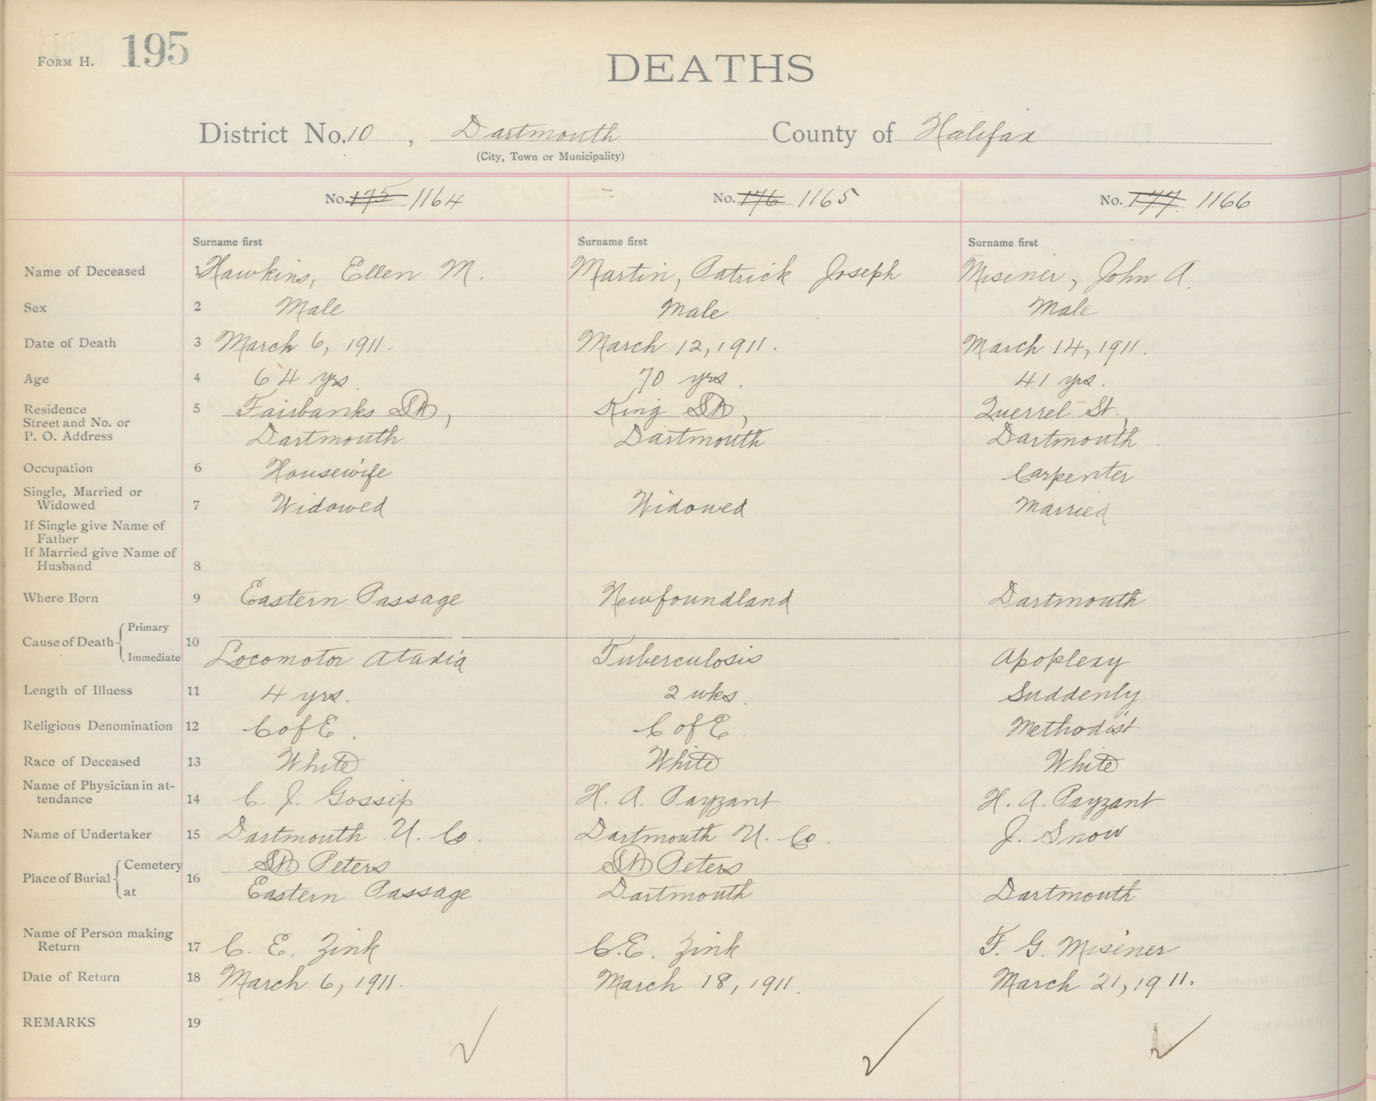 FORM H. 195
DEATHS
District No. 10, Dartmouth County of Halifax
(City, Town or Municipality)
No. 175 1164 No. 176 1165 No. 177 1166
Surname first Surname first Surname first
Name of Deceased 1 Hawkins, Ellen M. Martin, Patrick Joseph Misener, John A.
Sex 2 Male Male Male
Date of Death 3 March 6, 1911. March 12, 1911. March 14, 1911.
Age 4 64 yrs. 70 yrs. 41 yrs.
Residence 5 Fairbanks St, King St, Querrel St,
Street and No. or
P. O. Address Dartmouth Dartmouth Dartmouth
Occupation 6 Housewife Carpenter
Single, Married or
Widowed 7 Widowed Widowed Married
If Single give Name of
Father
If Married give Name of
Husband 8
Where Born 9 Eastern Passage Newfoundland Dartmouth
Cause of Death Primary 10
Immediate Locomotor Ataxia Tuberculosis Apoplexy
Length of Illness 11 4 yrs. 2 wks. Suddenly
Religious Denomination 12 C of E. C of E Methodist
Race of Deceased 13 White White White
Name of Physician in at-
tendance 14 C. J. Gossip H. A. Payzant H. A. Payzant
Name of Undertaker 15 Dartmouth U. Co. Dartmouth U. Co. J. Snow
Place of Burial Cemetery 16 St Peters St Peters
at Eastern Passage Dartmouth Dartmouth
Name of Person making
Return 17 C. E. Zink C. E. Zink F. G. Misener
Date of Return 18 March 6, 1911. March 18, 1911. March 21, 1911.
REMARKS 19